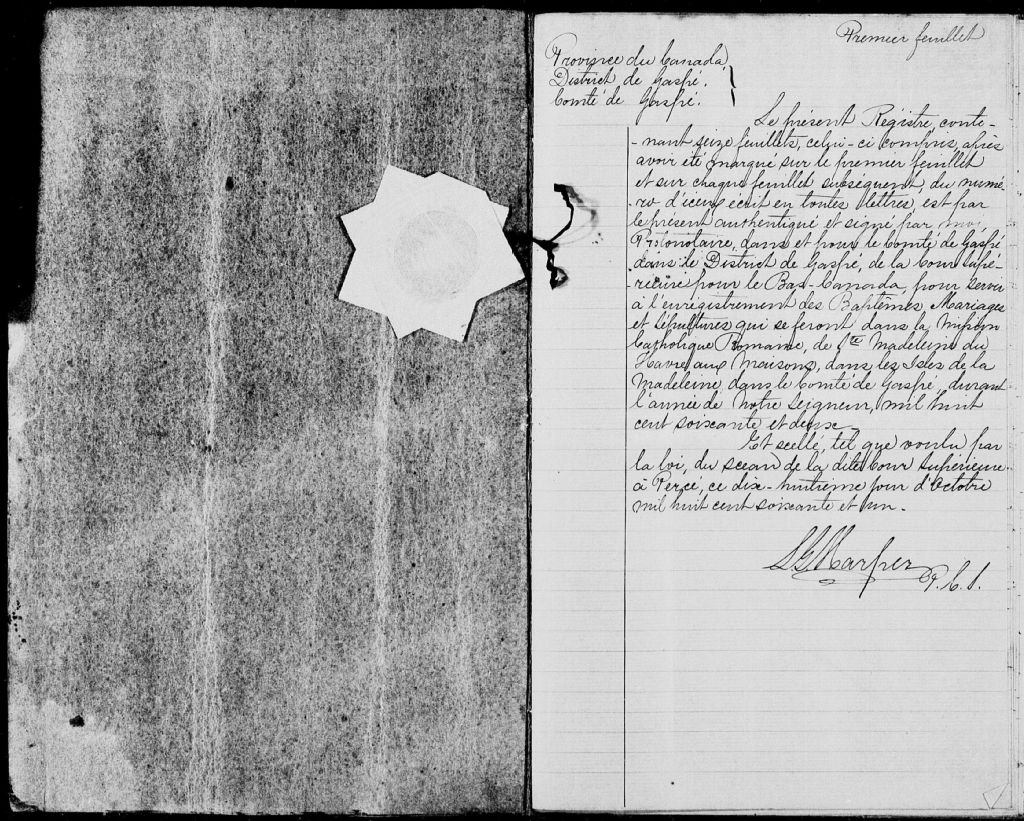 Premier feuillet
Province du Canada,
District de Gaspé.
Comté de Gaspé.
Le présent Régistre, conte-
-nant seize feuillets, celui-ci compris, après
avoir été marqué sur le premier feuillet
et sur chaque feuillet subséquent, du numé-
-ro d'iceux écrit en toutes lettres, est par
le présent authentiqué et signé par moi,
Protonotaire, dans et pour le Comté de Gaspé
dans le District de Gaspé, de la Cour Supé-
-rieure pour le Bas-Canada, pour servir
à l'enrégistrement des Baptêmes, Mariages
et Sépultures qui se feront dans la Mission
Catholique Romaine, de Ste Madeleine du
Havre aux Maisons, dans les Isles de la
Madeleine, dans le Comté de Gaspé, durant
l'année de Notre Seigneur, mil huit
cent soixante et deux.
Et scellé, tel que voulu par
la loi, du sceau de la dite Cour Supérieure
à Percé, ce dix-huitième jour d'Octobre
mil huit cent soixante et un.
P.C.S.